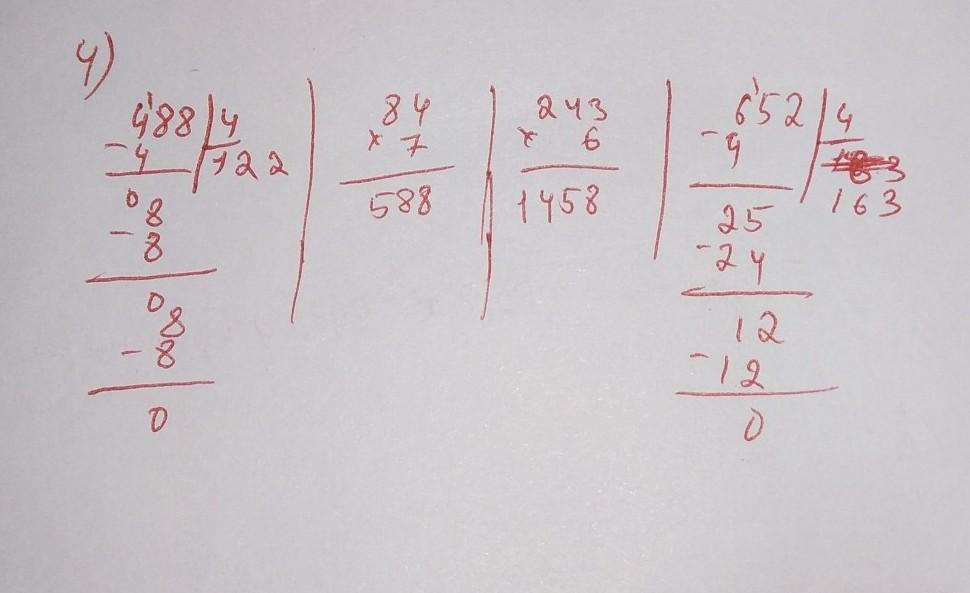 4)
488 | 4
- 4 | 122
08
- 8
08
- 8
0
84
x 7
588
243
x 6
1458
652 | 4
- 4
163
25
- 24
12
- 12
0